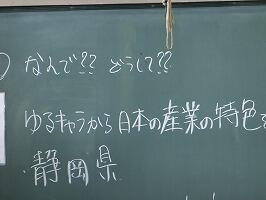 なんで?? どうして??
ゆるキャラから日本の産業の特色を
静岡県